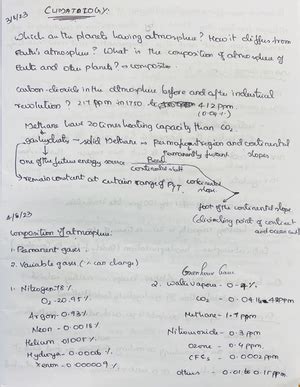 CLIMATOLOGY
3/8/23
which are the planets having atmosphere? How it differs from
Earth's atmosphere? What is the composition of atmosphere of
Earth and other planets? → composite
carbon-dioxide in the atmosphere before and after industrial
revolution? 217 ppm in 1750 to 412 ppm
Methane have 20 times heating capacity than CO2
gashydrate → solid Methane in permafrost region and continental
slopes
Permanently frozen
one of the future energy source
continental shelf
remain constant at certain range of P,T.
continental slope
foot of the continental slope
(dividing point of continent
and ocean
Composition of atmosphere.
1. Permanent gases.
2. Variable gases (% can change)
Greenhouse Gases
1. Nitrogen 78%
O2 - 20.95%
Argon - 0.93%
Neon - 0.0018%
Helium - 0.0005%
Hydrogen - 0.00006%
Xenon - 0.000009%
2. Water vapour - 0-4%
CO2 - 0.041%
Methane - 1.7 ppm
Nitrous oxide - 0.3 ppm
Ozone - 0.4 ppm
CFCs - 0.0002 ppm
Others - 0.01 to 0.15 ppm